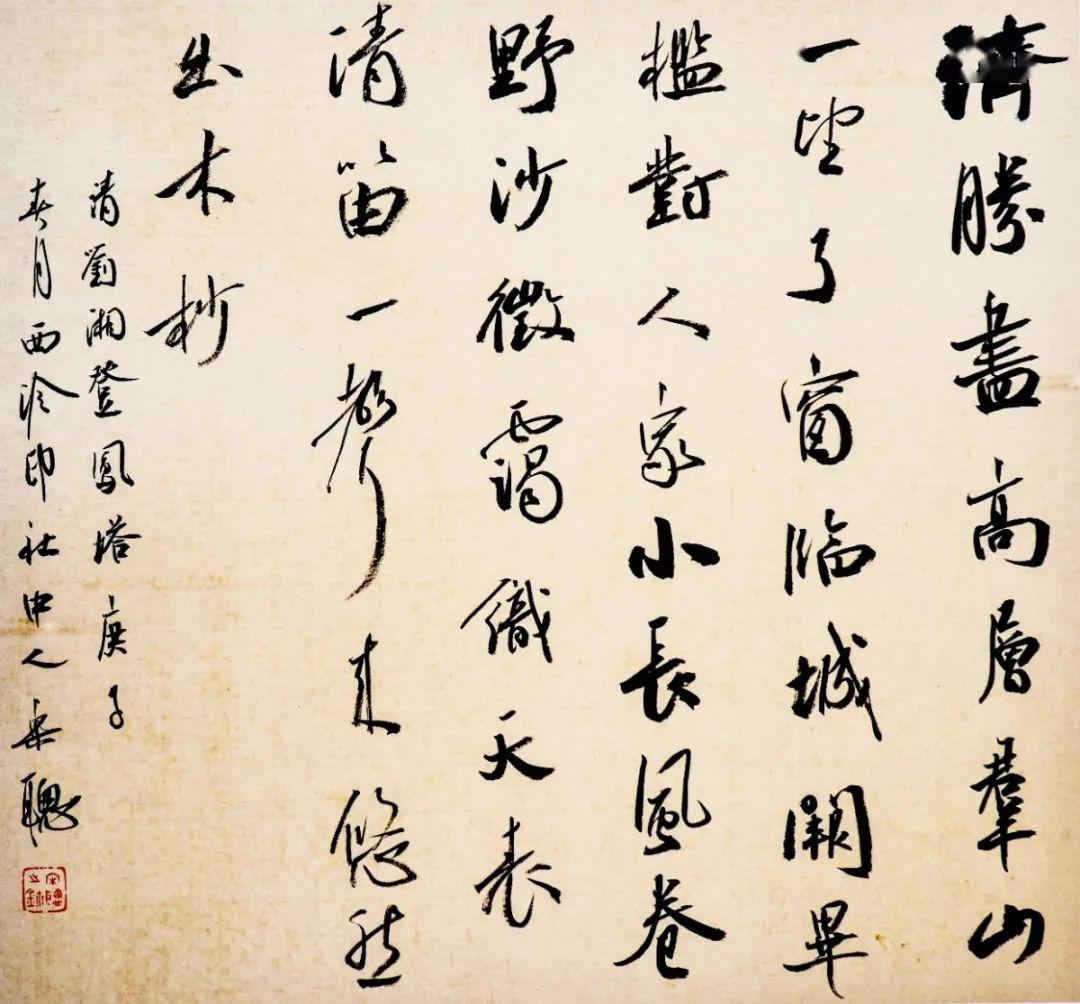 濟勝盡高層羣山
一望了窗臨城闕畢
檻對人家小長風卷
野沙微靄織天表
清笛一聲來悠然
出木杪
清劉湘登鳳塔庚子
春月西泠印社中人宋聰